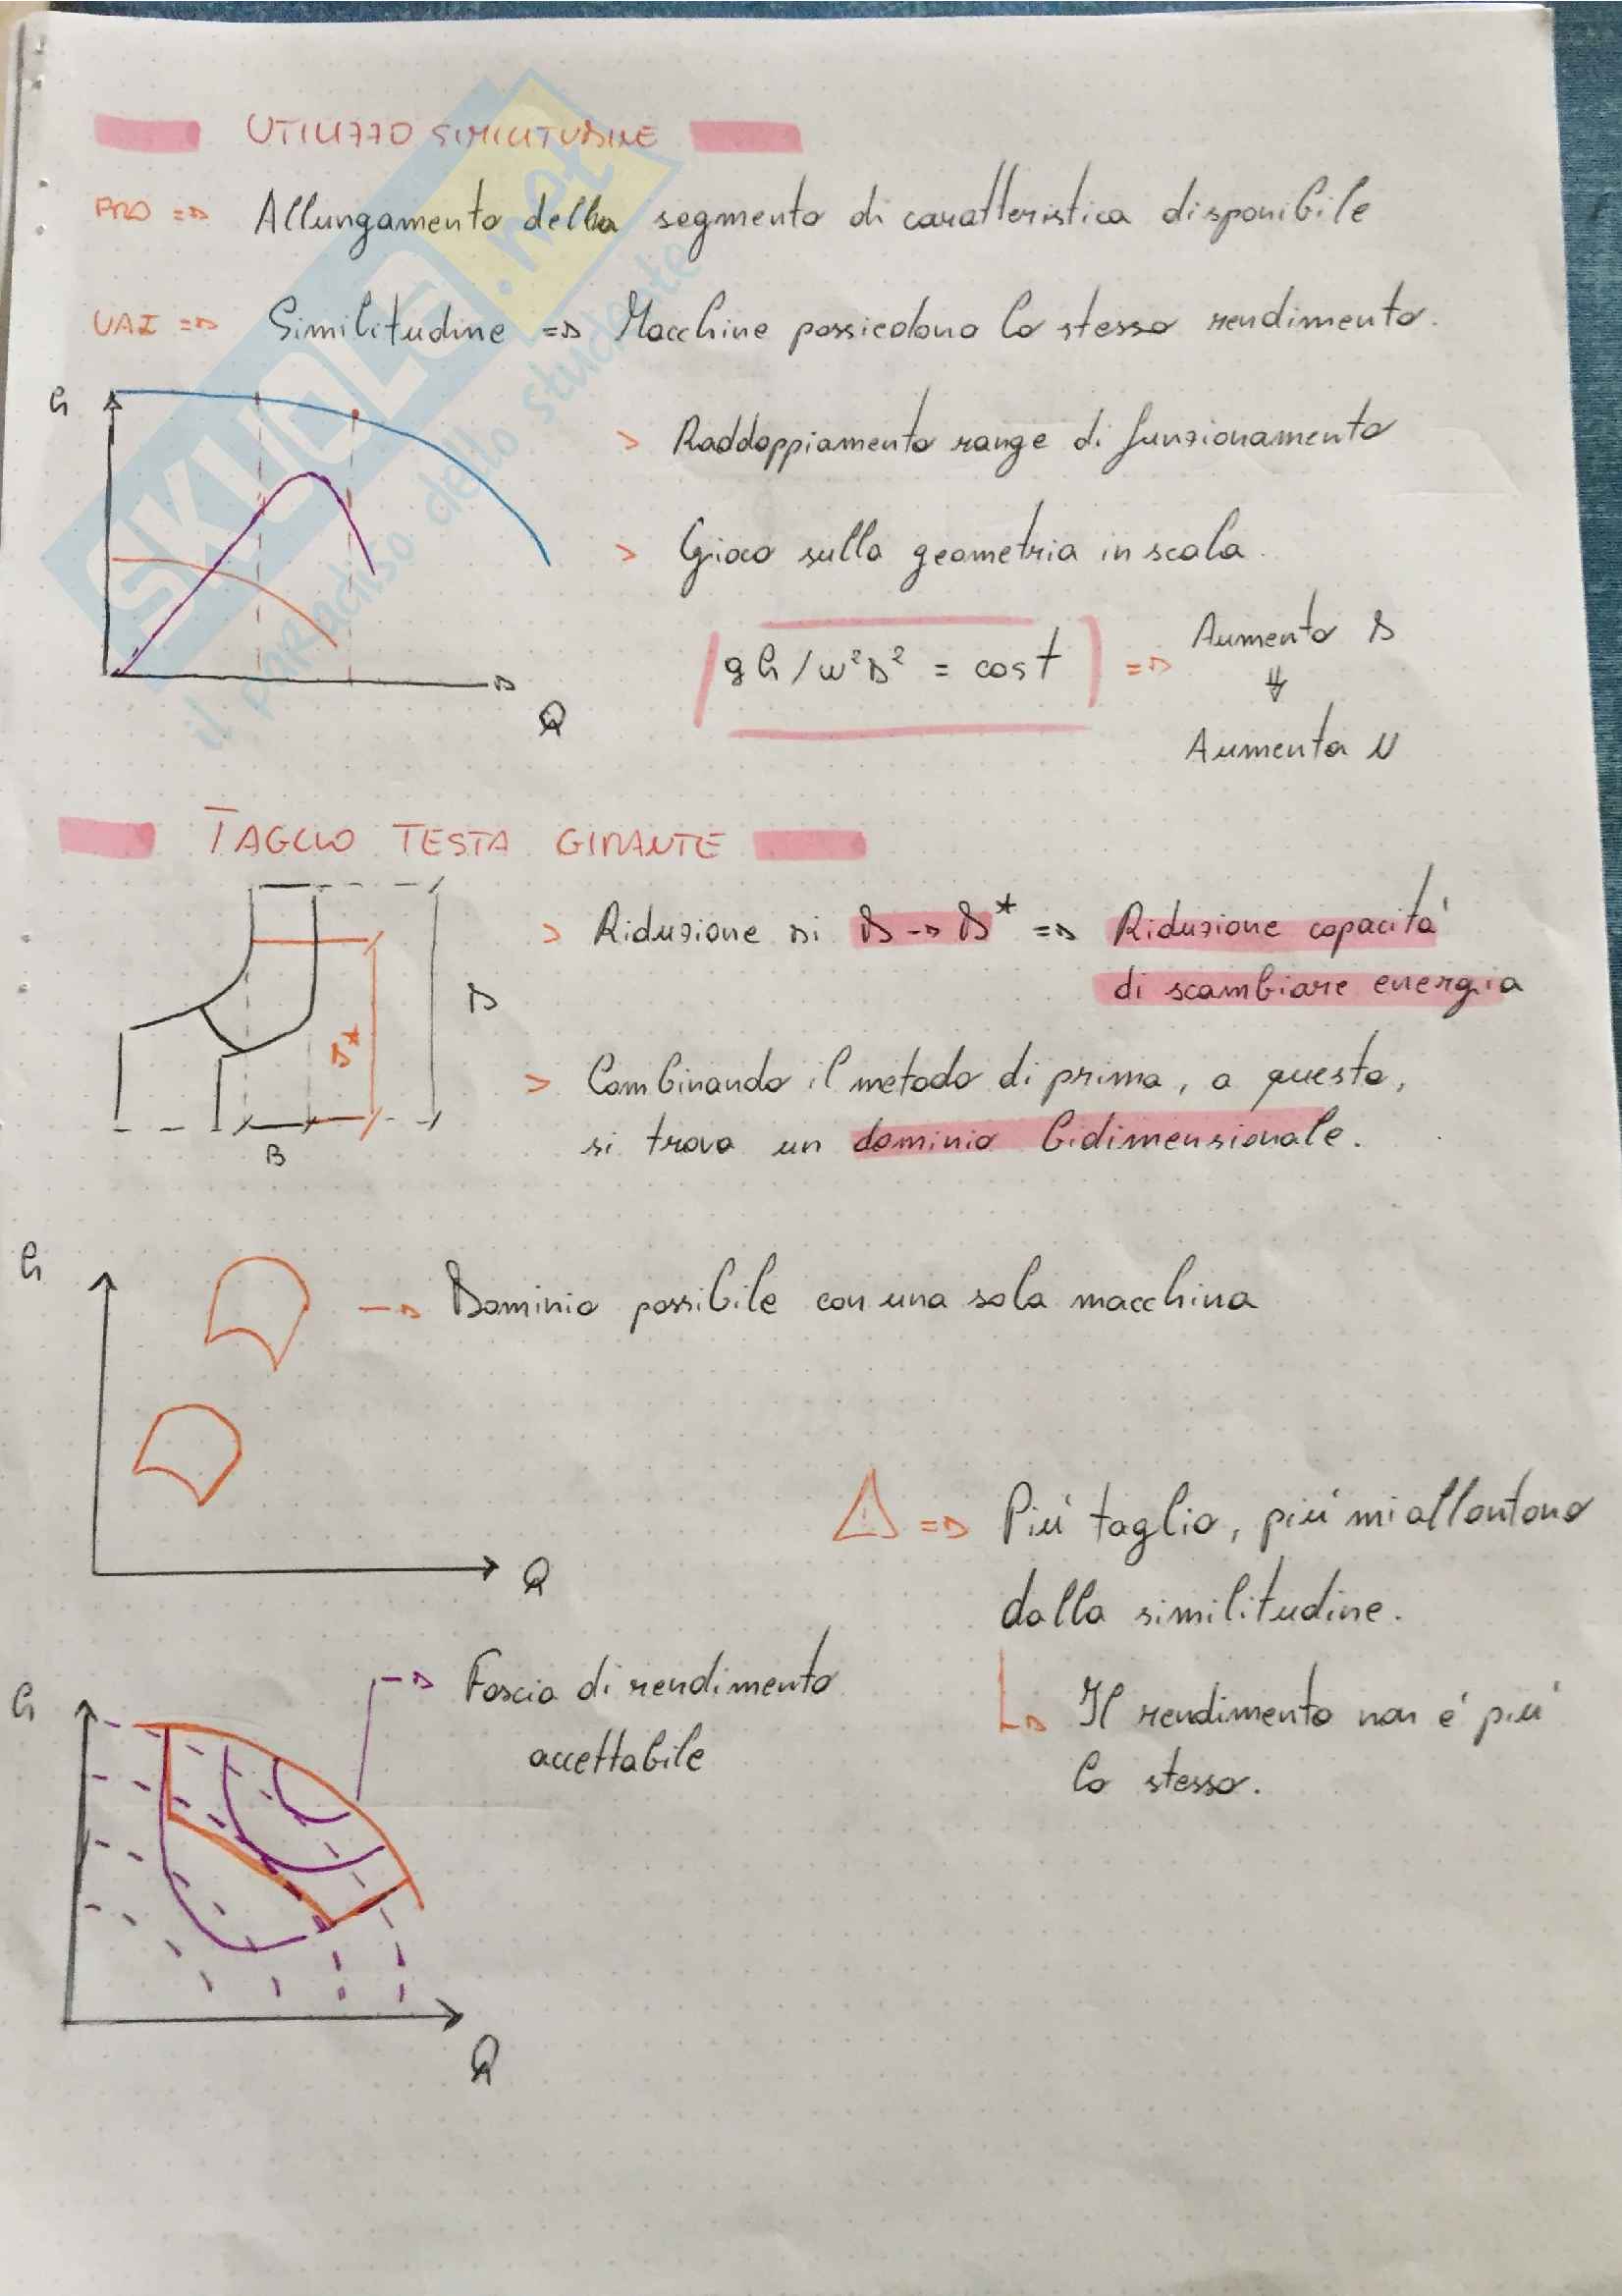 UTILIZZO SIMILITUDINE
PRO => Allungamento della segmento di caratteristica disponibile
VAI => Similitudine => Macchine possiedono lo stesso rendimento.
h
> Raddoppiamento range di funzionamento
> Gioco sulla geometria in scala.
gh/w²D² = cost => Aumento D
⇓
Aumenta N
Q
TAGLIO TESTA GIRANTE
> Riduzione di D -> D* => Riduzione capacità
di scambiare energia
D
D*
B
> Combinando il metodo di prima, a questo,
si trova un dominio bidimensionale.
h
-> Dominio possibile con una sola macchina
Q
! => Più taglio, più mi allontano
dalla similitudine.
-> Il rendimento non è più
lo stesso.
h
-> Fascia di rendimento
accettabile
Q
SKUOLA.net
il paradiso dello studente